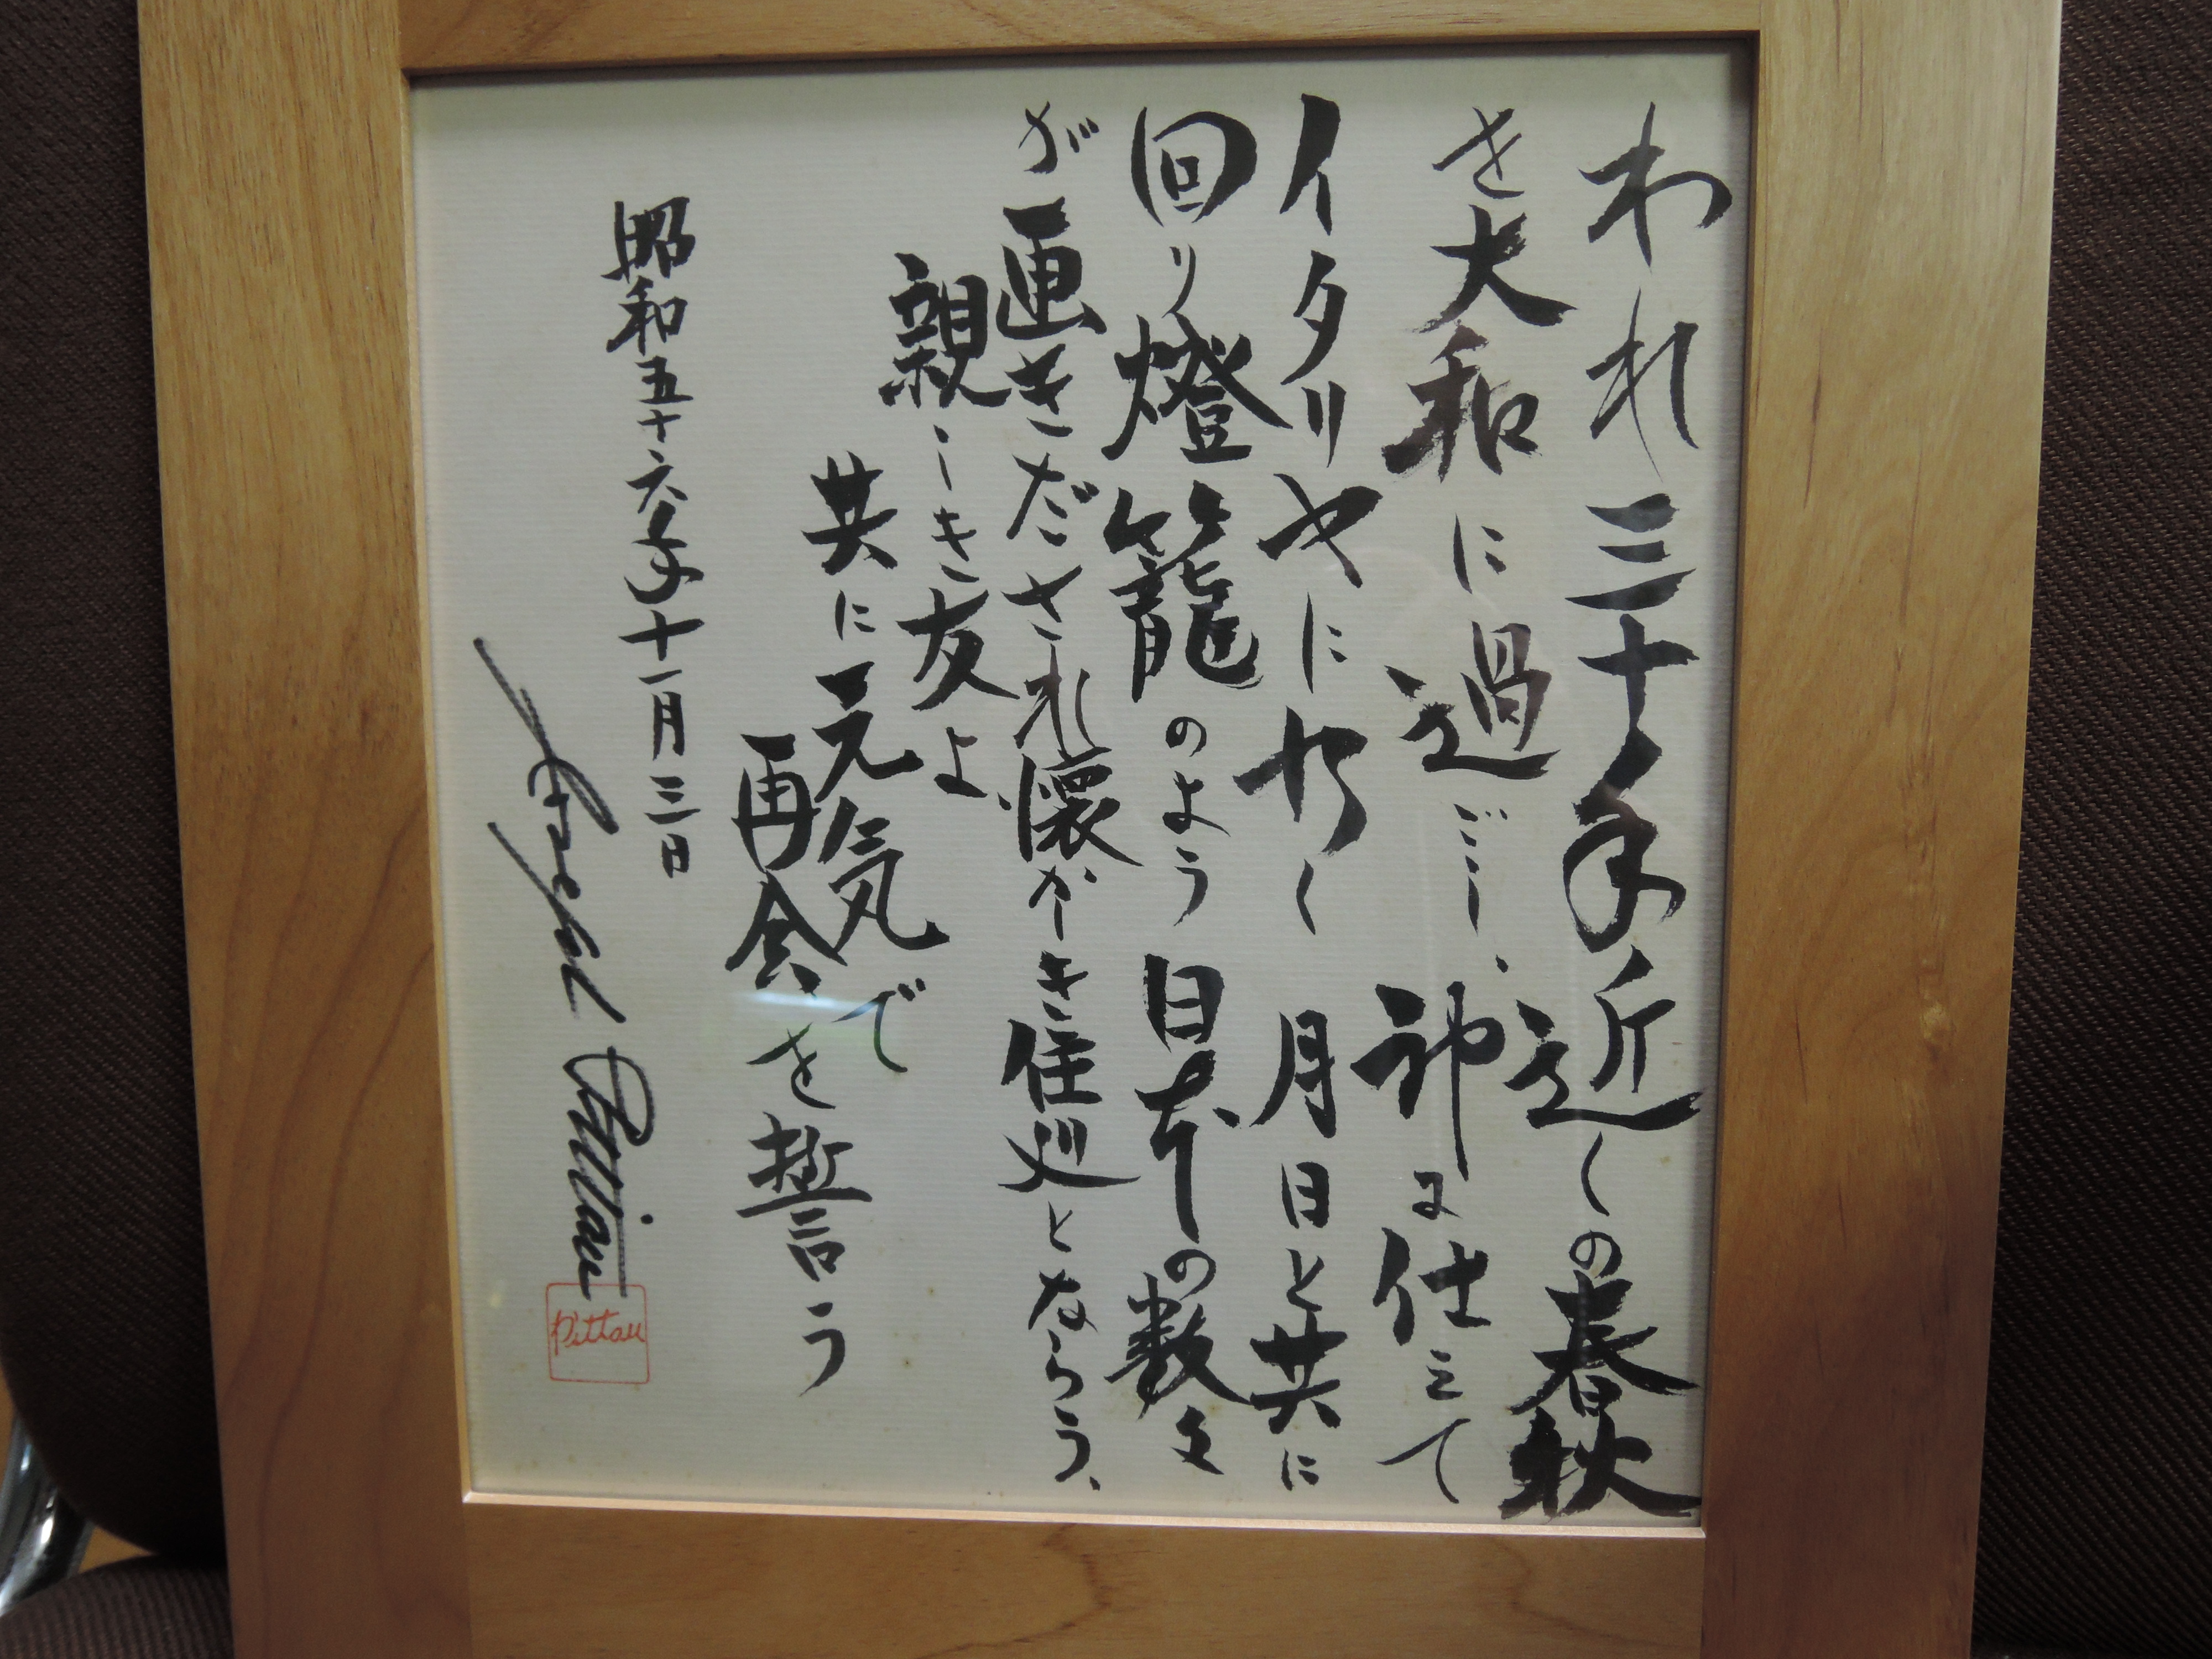 われ三十年近くの春秋
を大和に過ごし、神に仕えて
イタリヤに行く 月日と共に
回り燈籠のよう 日本の数々
が画きだされ懐かしき住処とならう、
親しき友よ、
共に元気で
再会を誓う
昭和五十六年十一月三日
Joseph Pittau
Pittau